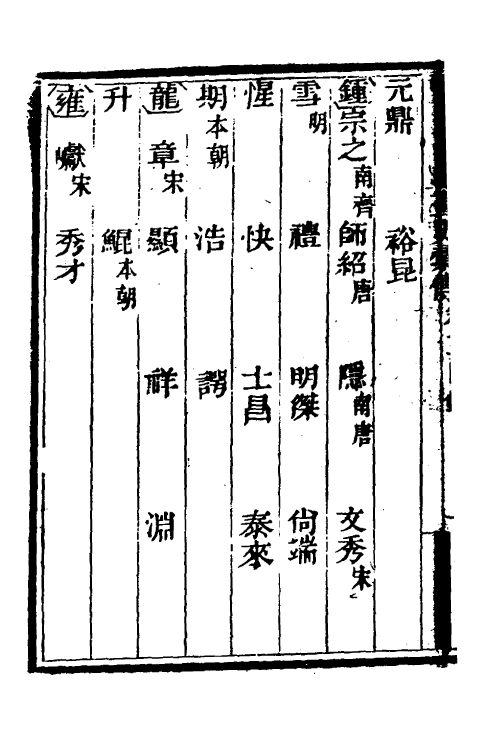 元鼎　裕昆
鍾崇之南齊　師紹唐　隱南唐　文秀宋
雪明　禮　明傑　尙端
惺　快　士昌　泰來
期本朝　浩　諤
龍章宋　顯　祥　淵
升　鯤本朝
雍巘宋　秀才